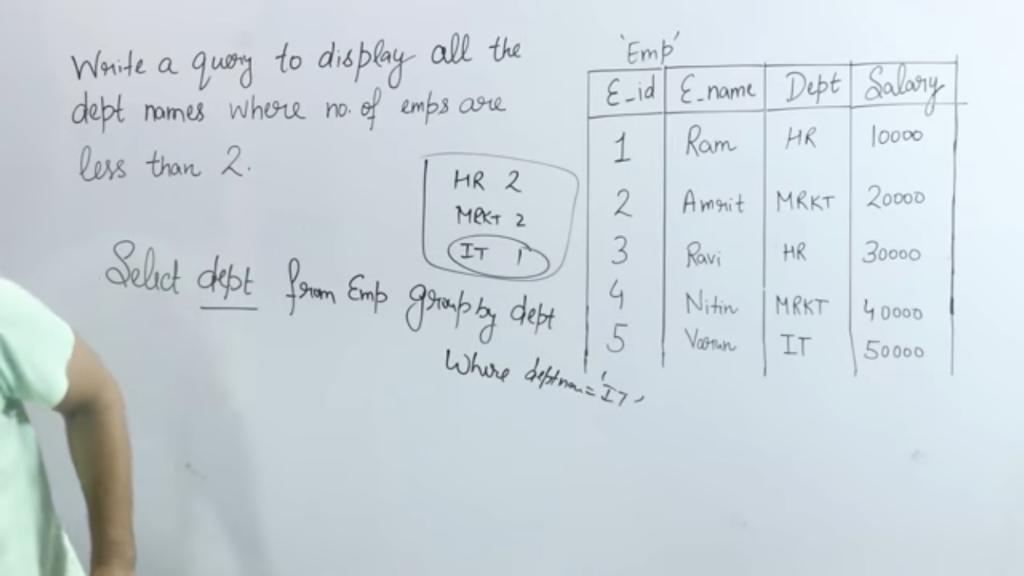 Write a query to display all the
dept names where no. of emps are
less than 2.
HR 2
MRKT 2
IT 1
Select dept from Emp group by dept
Where
= 'IT'
'Emp'
E_id E_name Dept Salary
1 Ram HR 10000
2 Amrit MRKT 20000
3 Ravi HR 30000
4 Nitin MRKT 40000
5 Varun IT 50000